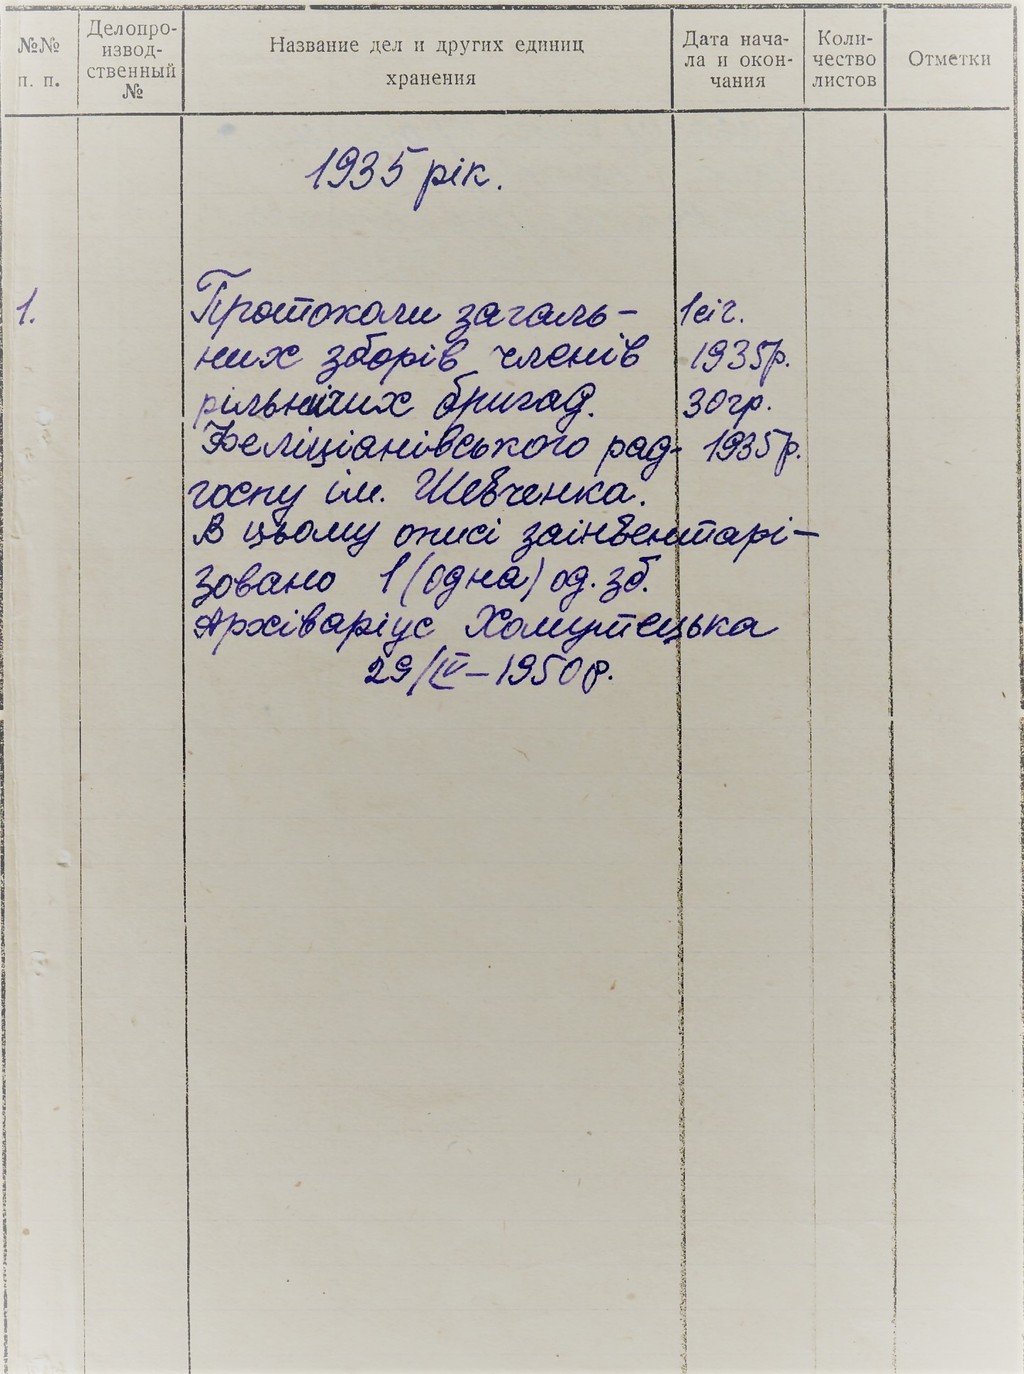 №№ п. п.
Делопро-
извод-
ственный
№
Название дел и других единиц
хранения
Дата нача-
ла и окон-
чания
Коли-
чество
листов
Отметки
1935 рік.
1. Протоколи загаль- 1 січ.
них зборів членів 1935р.
рільничих бригад. 30 гр.
Феліціанівського рад- 1935р.
госпу ім. Шевченка.
В цьому описі заінвентарі-
зовано 1 (одна) од. зб.
Архіваріус Хомутецька
29/IV-1950р.